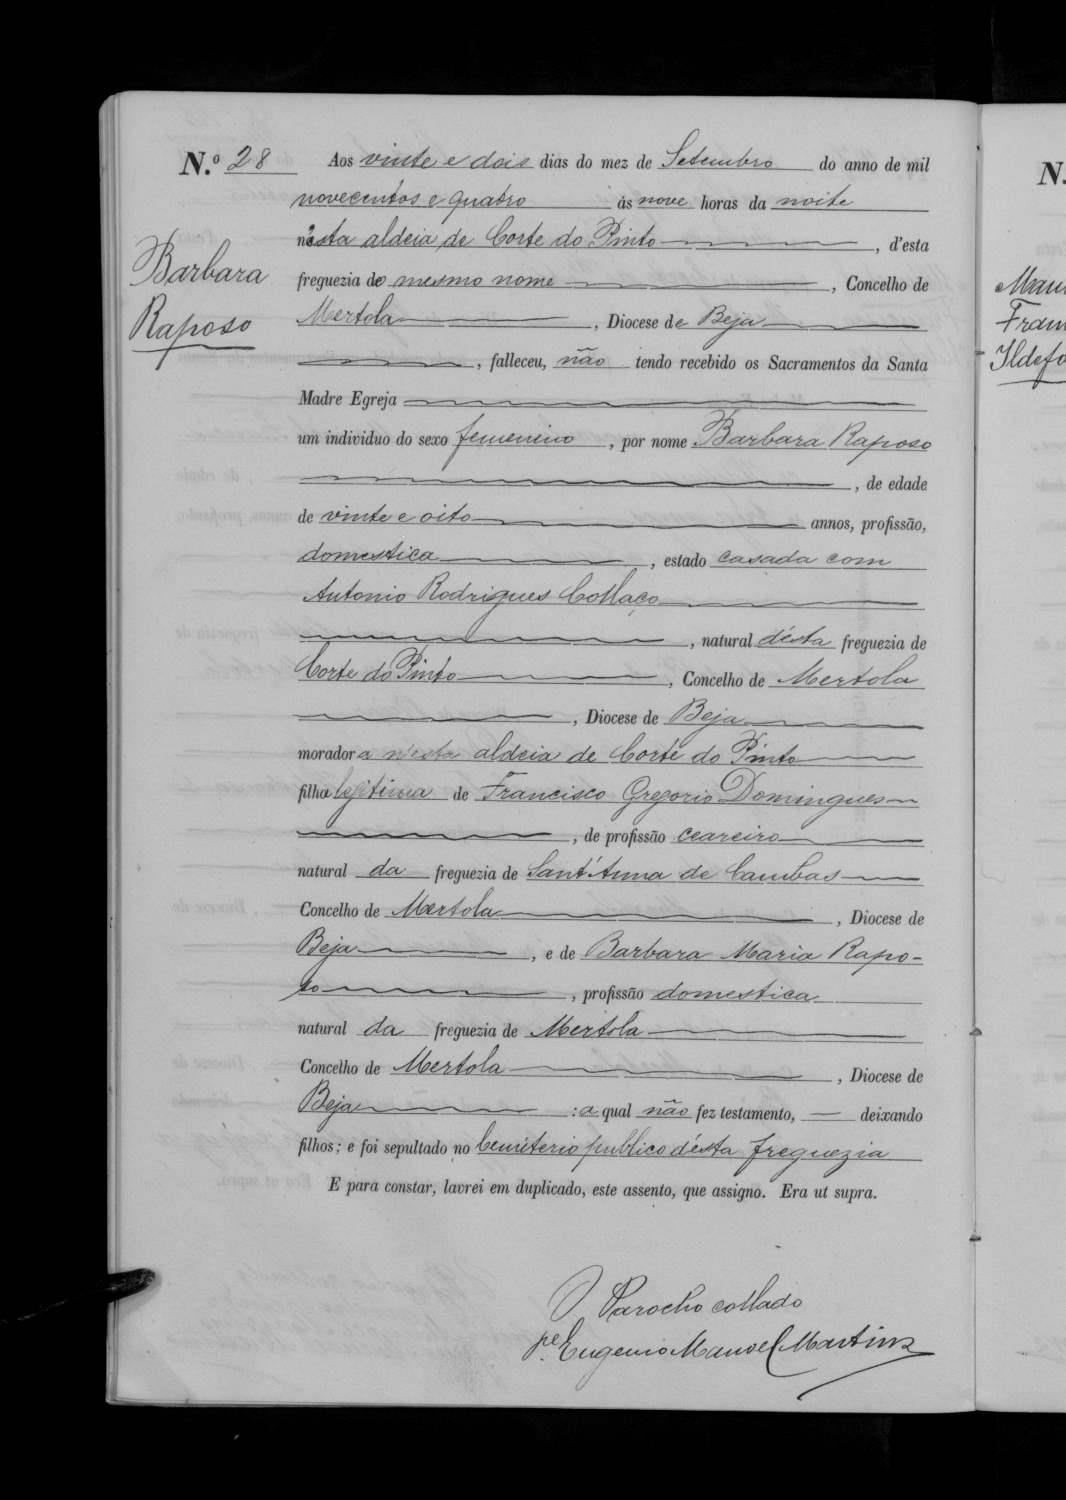 N.º 28
Barbara
Raposo
Aos vinte e dois dias do mez de Setembro do anno de mil
novecentos e quatro ás nove horas da noite
nésta aldeia de Corte do Pinto, d'esta
freguezia do mesmo nome, Concelho de
Mertola, Diocese de Beja
, falleceu, não tendo recebido os Sacramentos da Santa
Madre Egreja
um individuo do sexo femenino, por nome Barbara Raposo
, de edade
de vinte e oito annos, profissão,
domestica, estado casada com
Antonio Rodrigues Collaço
, natural désta freguezia de
Corte do Pinto, Concelho de Mertola
, Diocese de Beja
moradora n'esta aldeia de Corte do Pinto
filha legitima de Francisco Gregorio Domingues
, de profissão ceareiro
natural da freguezia de Sant'Anna de Cambas
Concelho de Mertola, Diocese de
Beja, e de Barbara Maria Rapo-
so, profissão domestica
natural da freguezia de Mertola
Concelho de Mertola, Diocese de
Beja: a qual não fez testamento, — deixando
filhos; e foi sepultado no Cemiterio publico désta freguezia
E para constar, lavrei em duplicado, este assento, que assigno. Era ut supra.
O Parocho collado
Pe. Eugenio Manoel Martins
N.
Fran
Ildefo